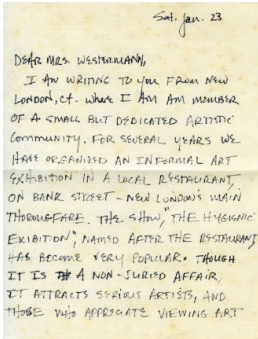 Sat. Jan. 23
DEAR MRS. WESTERMANN,
I AM WRITING TO YOU FROM NEW
LONDON, CT. WHERE I AM AM MEMBER
OF A SMALL BUT DEDICATED ARTISTIC
COMMUNITY. FOR SEVERAL YEARS WE
HAVE ORGANIZED AN INFORMAL ART
EXHIBITION IN A LOCAL RESTAURANT,
ON BANK STREET – NEW LONDON'S MAIN
THOROUGFARE. THE SHOW, "THE HYGIENIC
EXIBITION", NAMED AFTER THE RESTAURANT,
HAS BECOME VERY POPULAR. THOUGH
IT IS A NON-JURIED AFFAIR,
IT ATTRACTS SERIOUS ARTISTS, AND
THOSE WHO APPRECIATE VIEWING ART